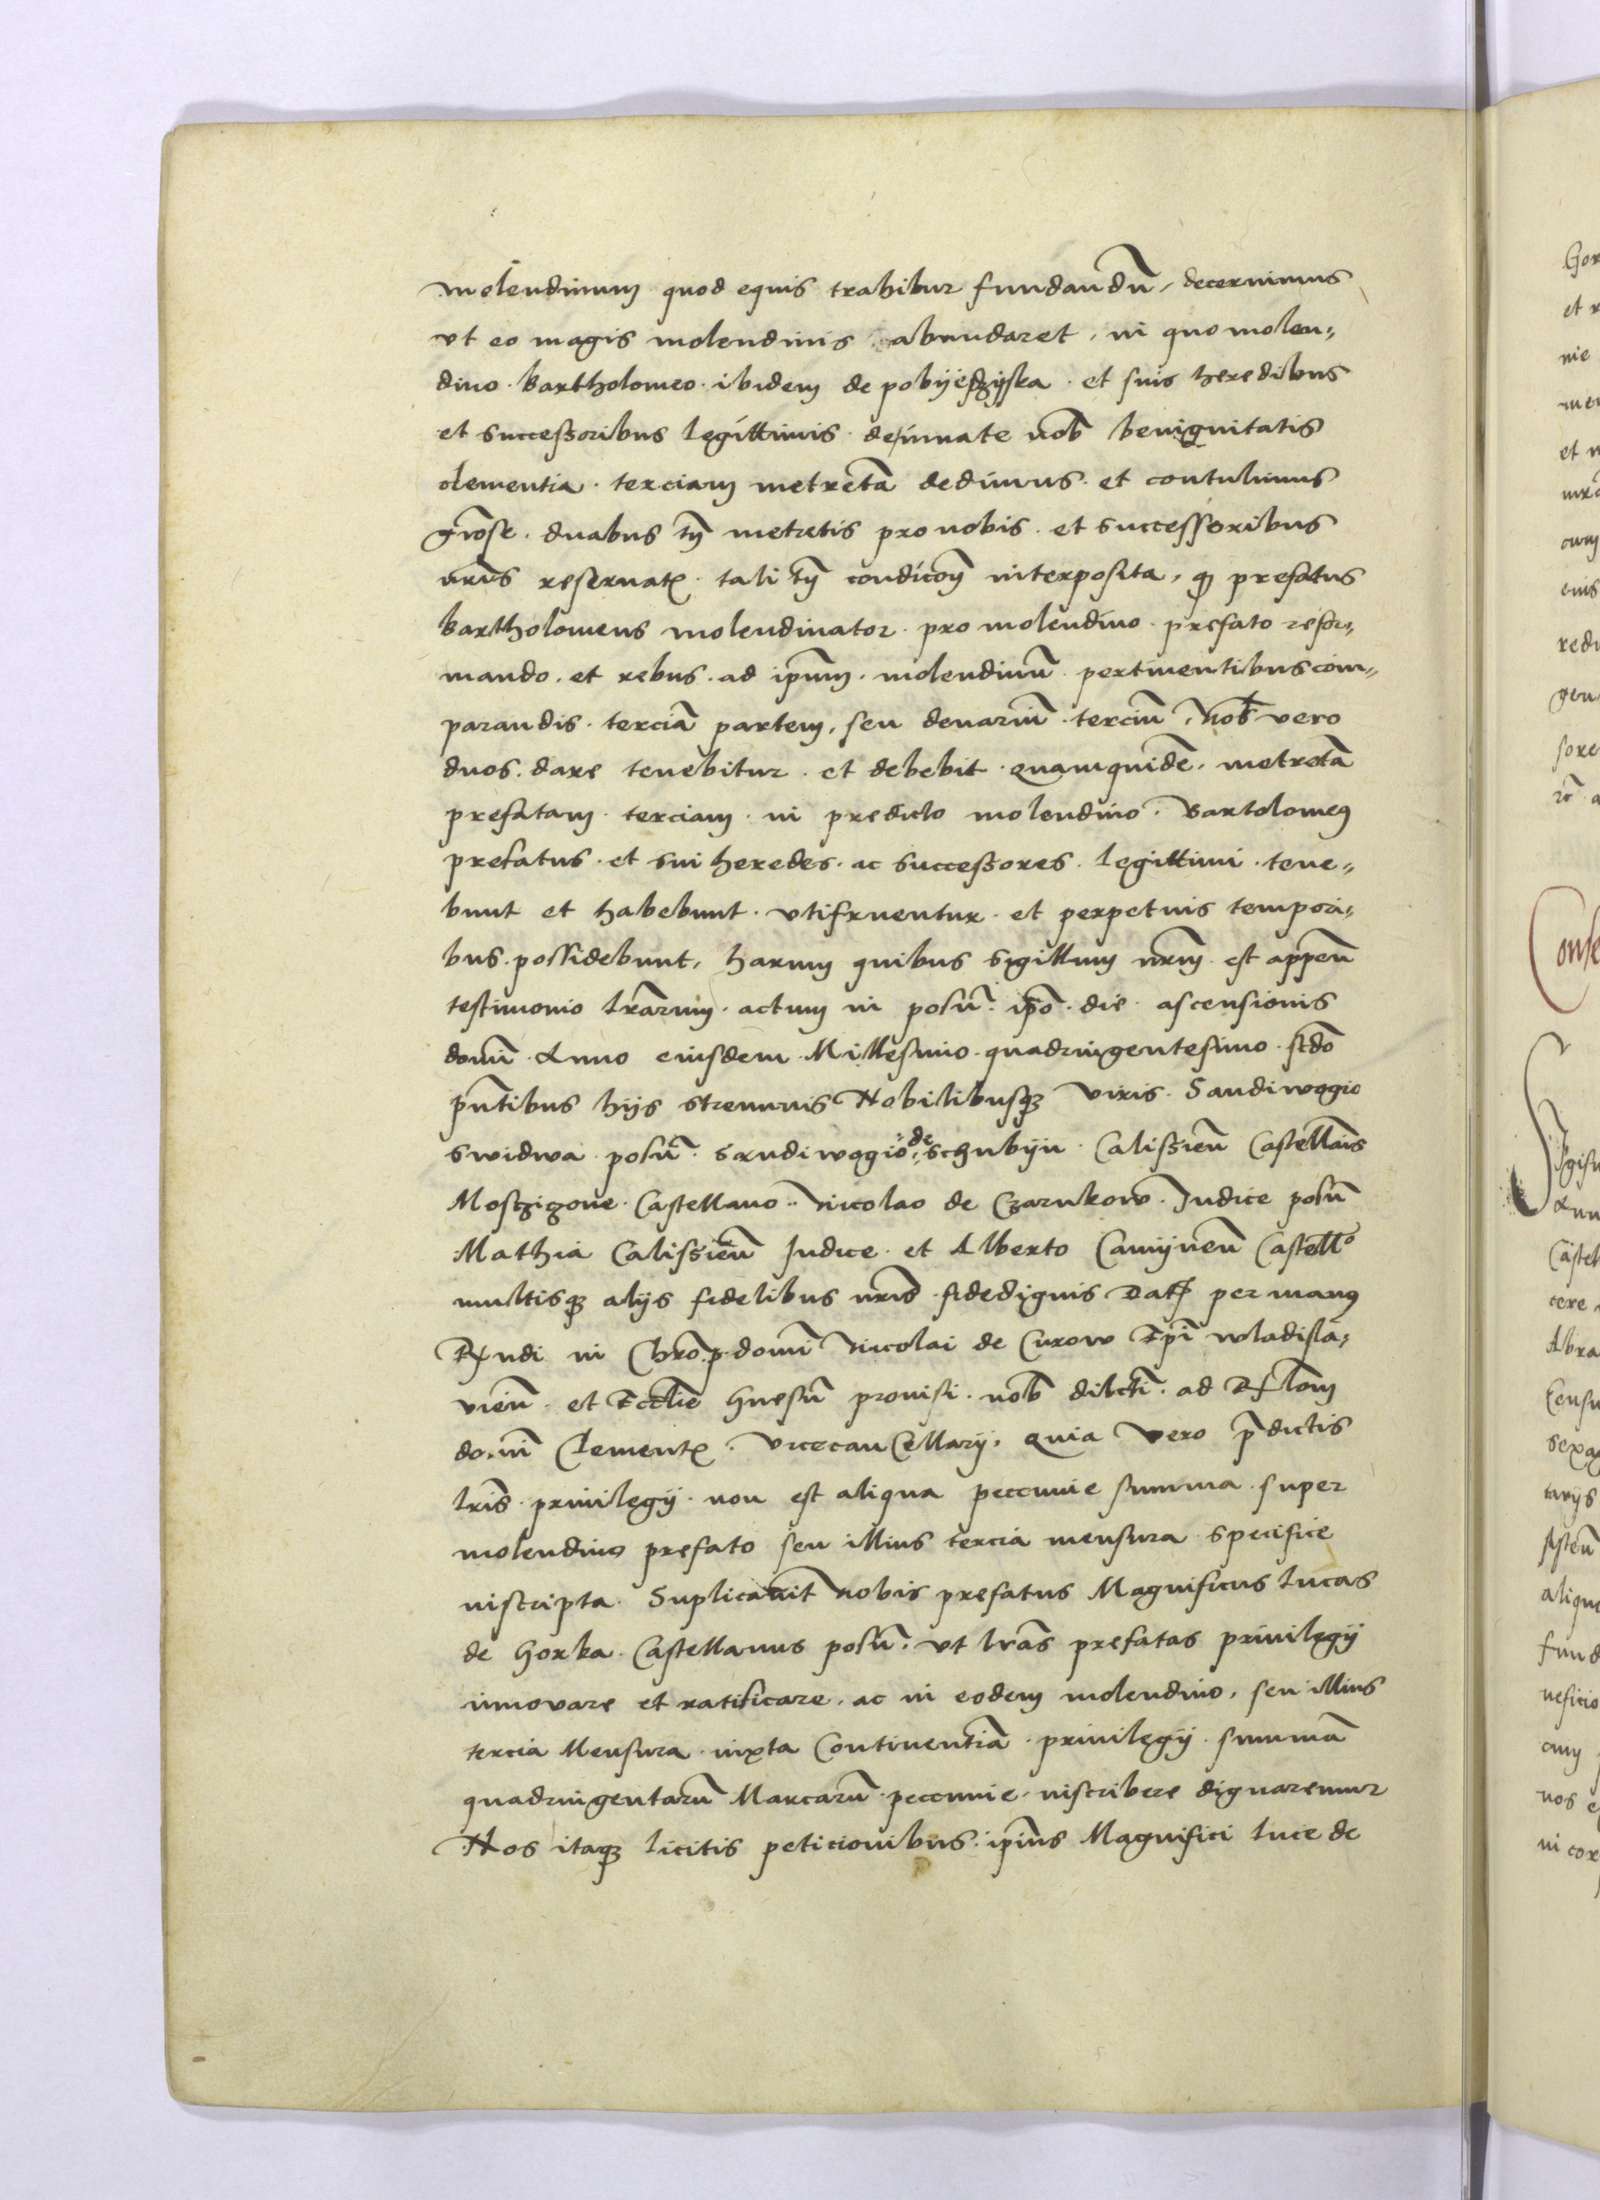 molendinum quod equis trahitur fundandũ, decernimus
vt eo magis molendinis abundaret, in quo molen-
dino. Bartholomeo. ibidem de pobyedzyska. et suis heredibus
et successoribus legittimis. de innate nob̃ benignitatis
clementia. terciam metretã dedimus. et contulimus
gr̃ose. duabus tñ metretis pro nobis. et successoribus
nr̃is reseruatꝭ. tali tñ condicõe interposita, ꝙ prefatus
Bartholomeus molendinator. pro molendino. prefato refor-
mando. et rebus. ad ip̃um. molendinũ pertinentibus com-
parandis. terciã partem, seu denariũ. terciũ, Nos vero
duos. dare tenebitur. et debebit. quamquidẽ. metretã
prefatam. terciam. in predicto molendino. Bartolomeꝰ
prefatus. et sui heredes. ac successores. legittimi. tene-
bunt et habebunt. vtifruentur. et perpetuis tempori-
bus. possidebunt, harum quibus sigillum nr̃m est appeñ
testimonio lr̃arum. actum in posñ. ip̃o. die ascensionis
domĩ Anno eiusdem Millesimo quadringentesimo. scdo
p̃ntibus hijs strenuis Nobilibusqꝫ viris. Sandiwogio
Swidwa posñ. Sandiwogio de Schubyn. Calissieñ Castellãis
Mosczizone. Castellano. Nicolao de Czarnkow. Iudice posñ
Mathia Calissieñ Iudice et Alberto Camyneñ Castellº
multisqꝫ alijs fidelibus nr̃is fidedignis Datꝭ per manꝰ
Rx̃ndi in Chr̃o p. domĩ Nicolai de Curow Ep̃i wladisla-
uieñ. et Eccl̃ie Gnesñ prouisi. nob̃ dilcti. ad Rel̃om
domĩ Clementꝭ. vicecancellarij, quia vero p̃dictis
lr̃is. priuilegij. non est aliqua peccunie summa. super
molendino prefato seu illius tercia mensura specifice
inscripta. Suplicauit nobis prefatus Magnificus Lucas
de Gorka. Castellanus posñ. vt lr̃as prefatas priuilegij
innovare et ratificare, ac in eodem molendino, seu illius
tercia Mensura. iuxta Continentiã. priuilegij. summã
quadringentarũ Marcarũ. peccunie. inscribere dignaremur
Nos itaqꝫ licitis peticionibus. ip̃ius Magnifici Luce de